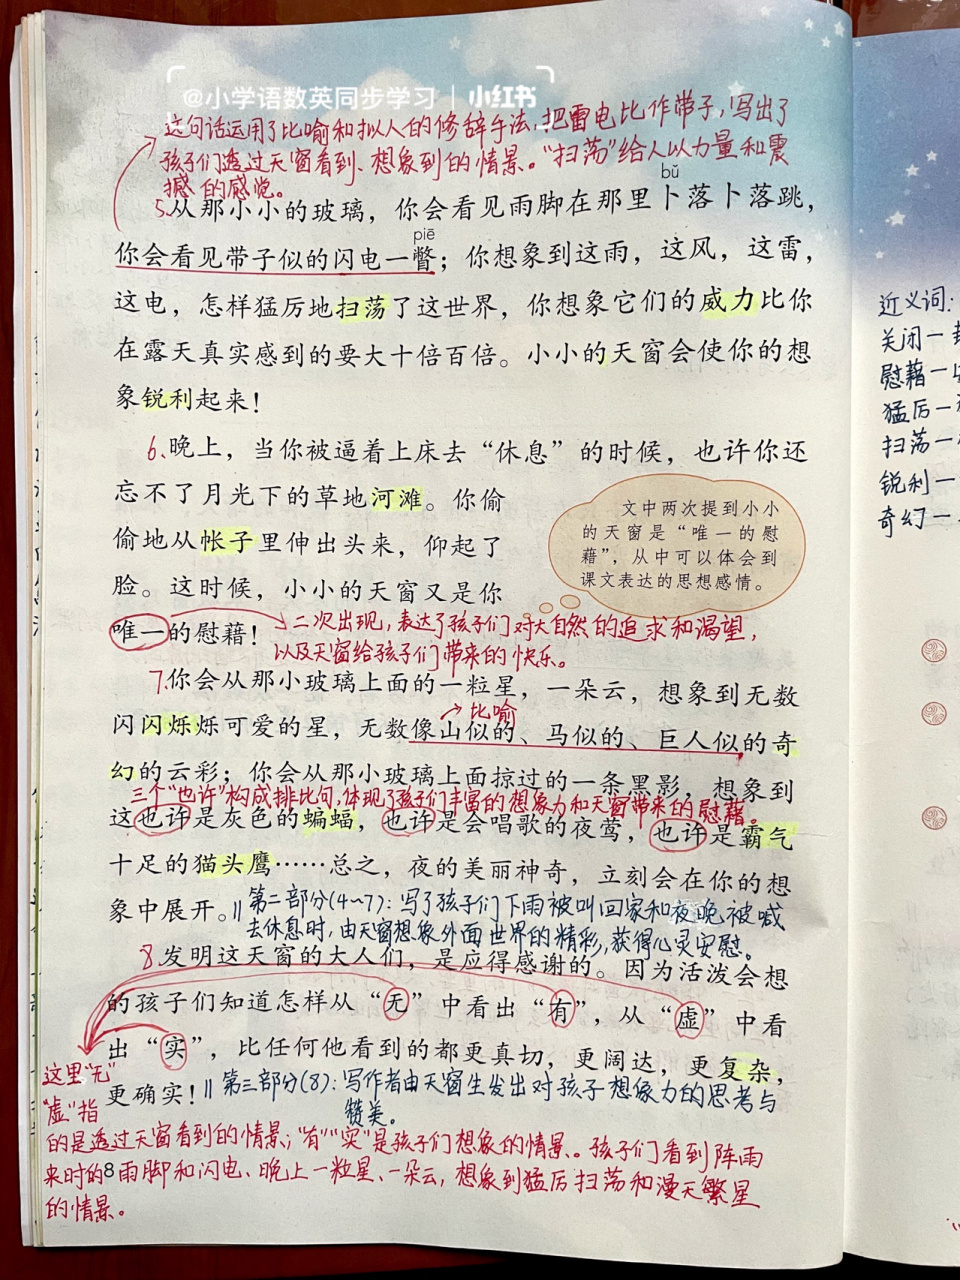 @小学语数英同步学习 | 小红书
这句话运用了比喻和拟人的修辞手法,把雷电比作带子,写出了
孩子们透过天窗看到、想象到的情景。"扫荡"给人以力量和震
撼的感觉。
bǔ
5.从那小小的玻璃，你会看见雨脚在那里卜落卜落跳，
piē
你会看见带子似的闪电一瞥；你想象到这雨，这风，这雷，
这电，怎样猛厉地扫荡了这世界，你想象它们的威力比你
在露天真实感到的要大十倍百倍。小小的天窗会使你的想
象锐利起来！
6、晚上，当你被逼着上床去“休息”的时候，也许你还
忘不了月光下的草地河滩。你偷
偷地从帐子里伸出头来，仰起了
脸。这时候，小小的天窗又是你
唯一的慰藉！
文中两次提到小小
的天窗是“唯一的慰
藉”，从中可以体会到
课文表达的思想感情。
二次出现,表达了孩子们对大自然的追求和渴望,
以及天窗给孩子们带来的快乐。
7.你会从那小玻璃上面的一粒星，一朵云，想象到无数
比喻
闪闪烁烁可爱的星，无数像山似的、马似的、巨人似的奇
幻的云彩；你会从那小玻璃上面掠过的一条黑影，想象到
三个"也许"构成排比句,体现了孩子们丰富的想象力和天窗带来的慰藉。
这也许是灰色的蝙蝠，也许是会唱歌的夜莺，也许是霸气
十足的猫头鹰……总之，夜的美丽神奇，立刻会在你的想
象中展开。
‖第二部分(4~7):写了孩子们下雨被叫回家和夜晚被喊
去休息时,由天窗想象外面世界的精彩,获得心灵安慰。
8.发明这天窗的大人们，是应得感谢的。因为活泼会想
的孩子们知道怎样从“无”中看出“有”，从“虚”中看
出“实”，比任何他看到的都更真切，更阔达，更复杂，
更确实！
‖第三部分(8):写作者由天窗生发出对孩子想象力的思考与
赞美。
这里"无"
"虚"指
的是透过天窗看到的情景;"有""实"是孩子们想象的情景。孩子们看到阵雨
来时的雨脚和闪电、晚上一粒星、一朵云,想象到猛厉扫荡和漫天繁星
的情景。
8
近义词:
关闭一
慰藉一
猛厉一
扫荡一
锐利一
奇幻一